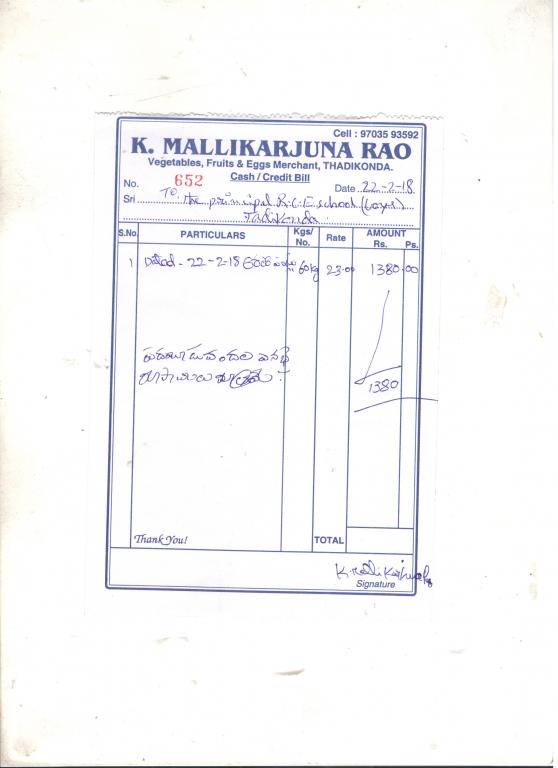 Cell : 97035 93592
K. MALLIKARJUNA RAO
Vegetables, Fruits & Eggs Merchant, THADIKONDA.
Cash / Credit Bill
No. 652 Date 22-2-18
Sri To. the principal. R.C.E school (boys)
Tadikonda.
S.No. PARTICULARS Kgs/ No. Rate AMOUNT Rs. Ps.
1 Dated - 22-2-18 60kg 23.00 1380.00
రూపాయలు
1380
Thank You! TOTAL
Signature